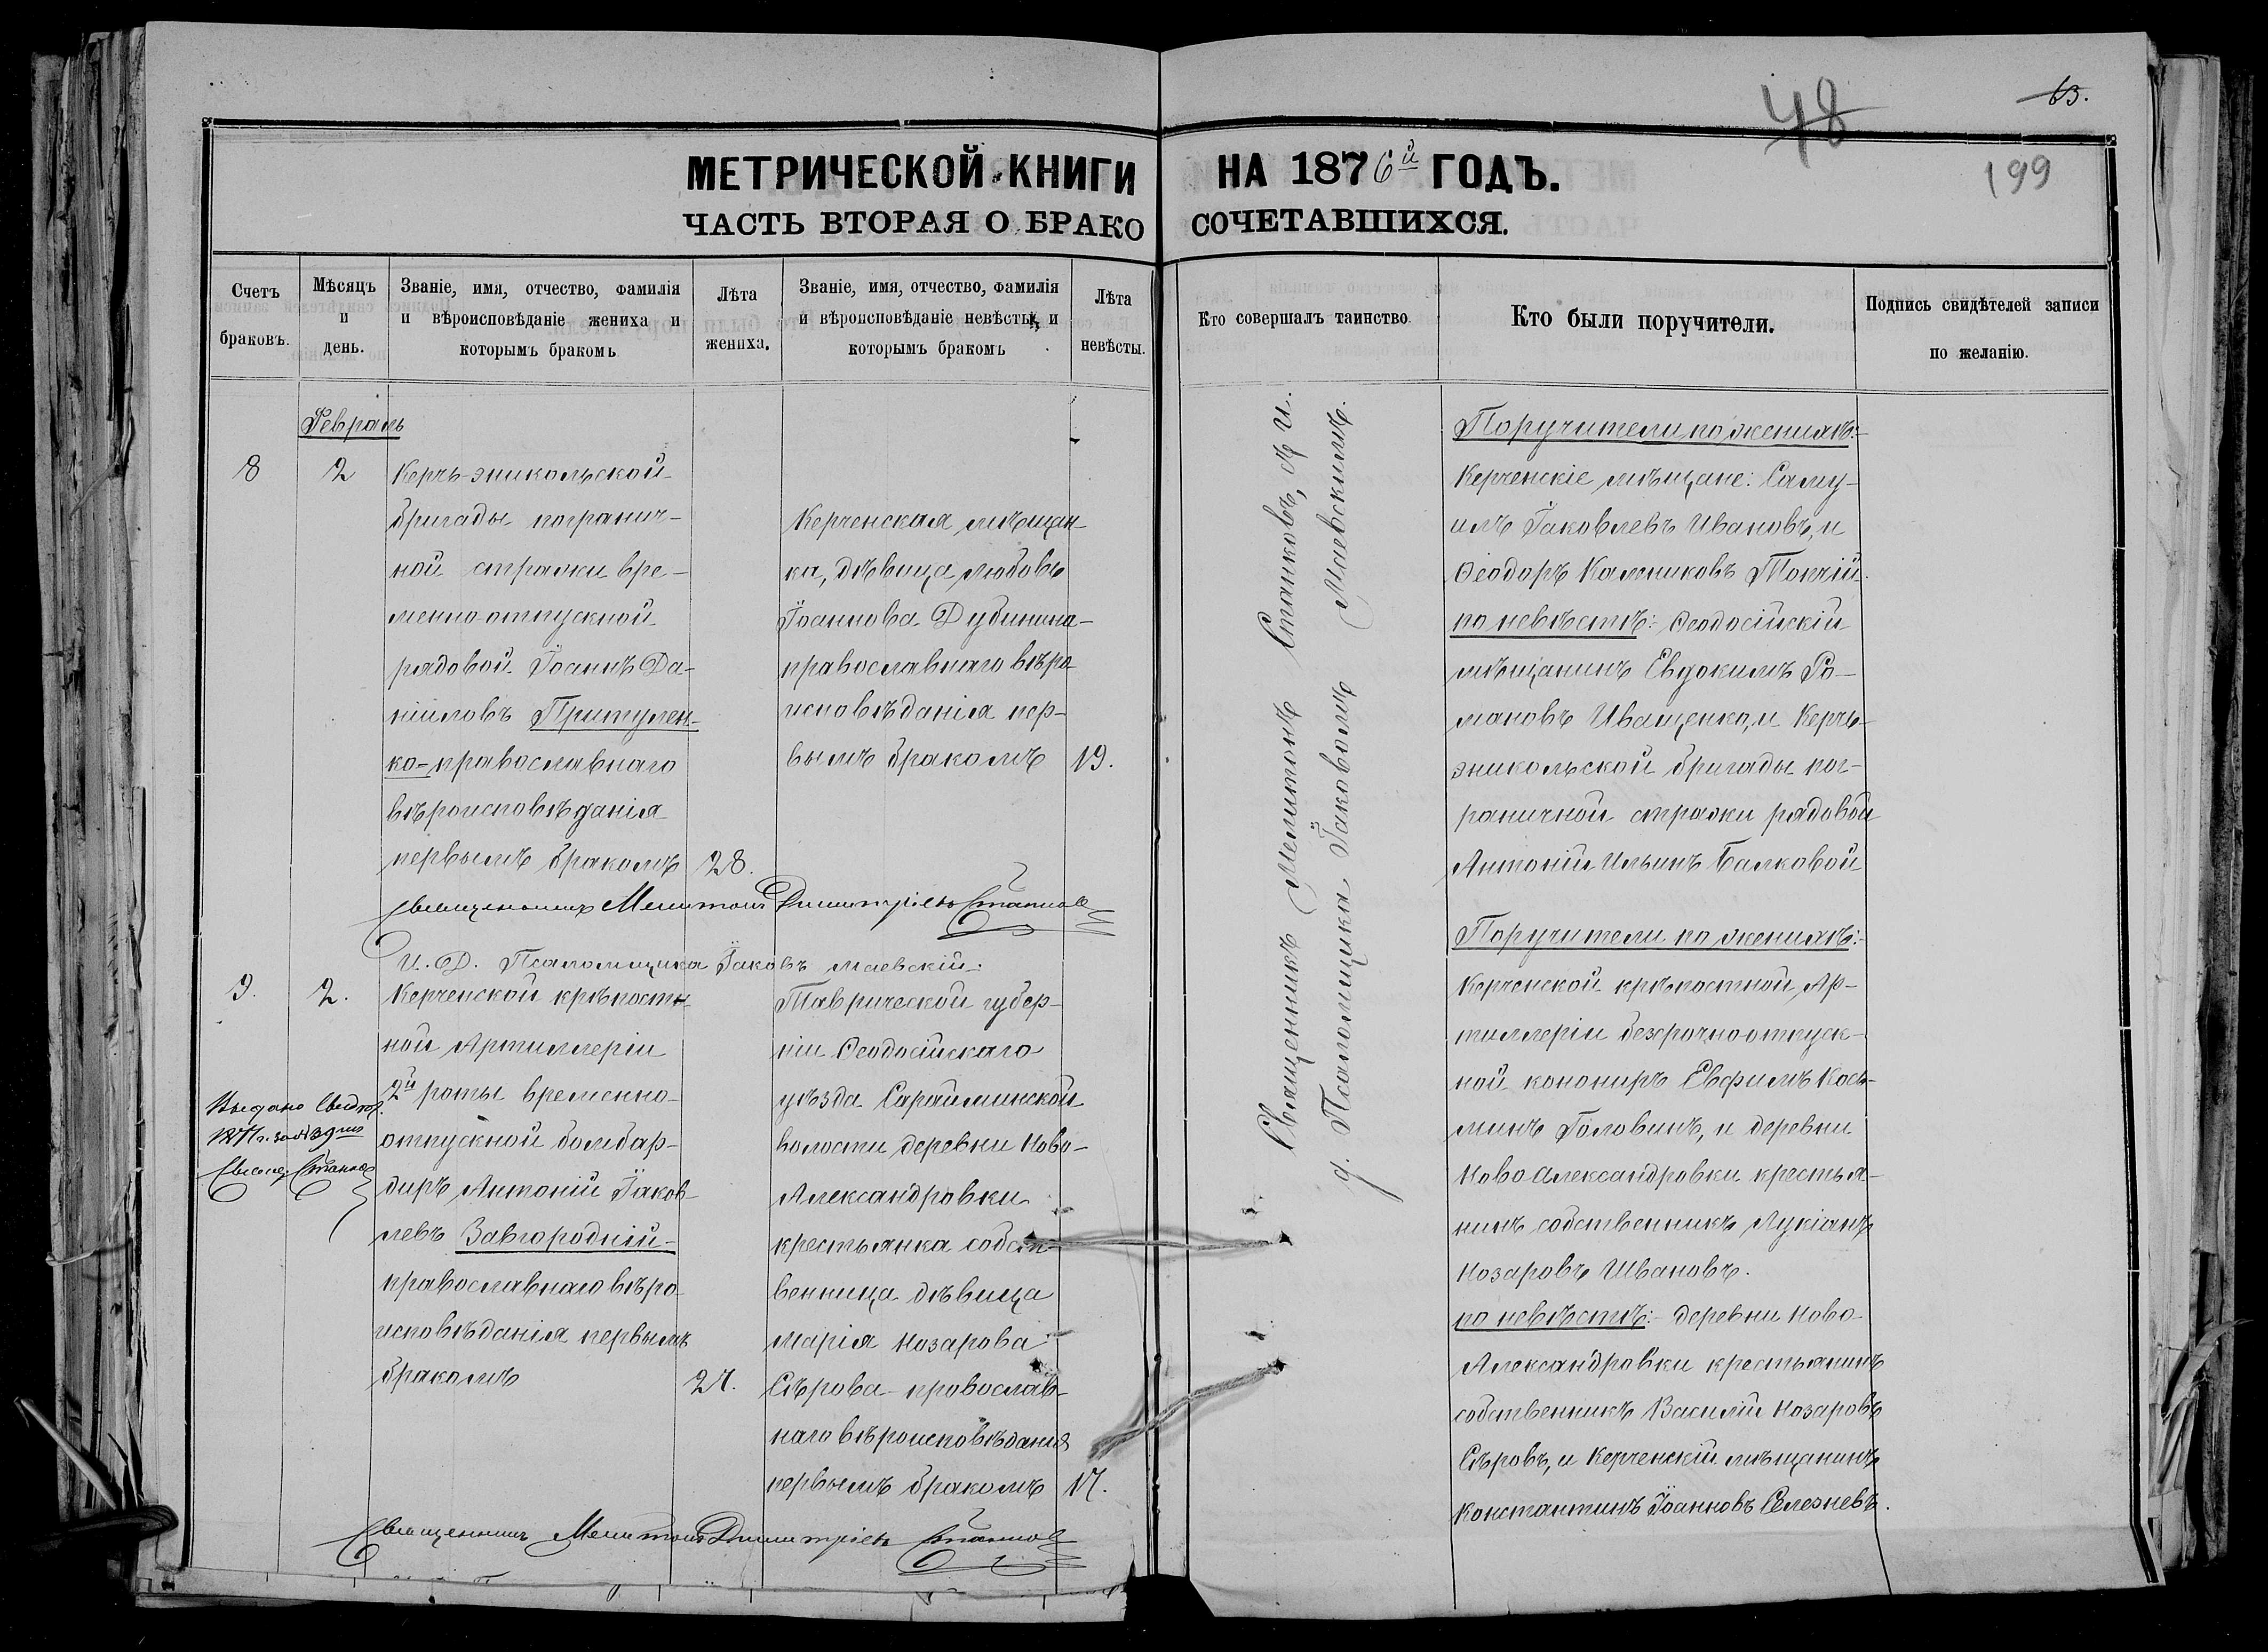 48
63.
199
МЕТРИЧЕСКОЙ КНИГИ НА 1876й ГОДЪ.
ЧАСТЬ ВТОРАЯ О БРАКОСОЧЕТАВШИХСЯ.
Счетъ
браковъ.
Мѣсяцъ
и
день.
Званіе, имя, отчество, фамилія
и вѣроисповѣданіе жениха и
которымъ бракомъ
Лѣта
жениха.
Званіе, имя, отчество, фамилія
и вѣроисповѣданіе невѣсты, и
которымъ бракомъ
Лѣта
невѣсты.
Кто совершалъ таинство
Кто были поручители.
Подпись свидѣтелей записи
по желанію.
Февраль
8
2
Керчь-эникольской
бригады погранич-
ной стражи вре-
менно-отпускной
рядовой Іоаннъ Да-
ніиловъ Притулен-
ко-православнаго
вѣроисповѣданія
первымъ бракомъ
28.
Керченская мѣщан-
ка, дѣвица Любовь
Іоаннова Дубинина-
православнаго вѣро
исповѣданія пер-
вымъ бракомъ
19.
Священникъ Мелитонъ Димитріевъ Станковъ
И. Д. Псаломщика Іаковъ Маевскій.
Священникъ Мелитонъ Станковъ, съ и.
д. Псаломщика Іаковомъ Маевскимъ.
Поручители по женихѣ:-
Керченскіе мѣщане: Саму-
илъ Іаковлевъ Ивановъ, и
Ѳеодоръ Калениковъ Токчій.
по невѣстѣ: Ѳеодосійскій
мѣщанинъ Евдокимъ Ро-
мановъ Иващенко, и Керчь-
эникольской бригады пог-
раничной стражи рядовой
Антоній Ильинъ Балковой
9.
2.
Выдано Свидѣт.
за № 39мъ
Свящ. Станковъ
Керченской крѣпостн-
ной Артиллеріи
2й роты временно-
отпускной бомбар-
диръ Антоній Іаков-
левъ Завгородній-
православнаго вѣро
исповѣданія первымъ
бракомъ
27.
Таврической губер-
ніи Ѳеодосійскаго
уѣзда Сарайминской
волости деревни Ново-
Александровки
крестьянка собст-
венница дѣвица
Марія Назарова
Сѣрова-православ-
наго вѣроисповѣданія
первымъ бракомъ
17.
Священникъ Мелитонъ Димитріевъ Станковъ
Поручители по женихѣ:-
Керченской крѣпостной Ар-
тиллеріи безсрочно-отпуск-
ной конониръ Евфимъ Кось-
минъ Головинъ, и деревни
Ново Александровки крестья-
нинъ собственникъ Лукіанъ
Назаровъ Ивановъ.
по невѣстѣ:- деревни Ново-
Александровки крестьянинъ
собственникъ Василій Назаровъ
Сѣровъ, и Керченскій мѣщанинъ
Константинъ Іоанновъ Селезневъ.